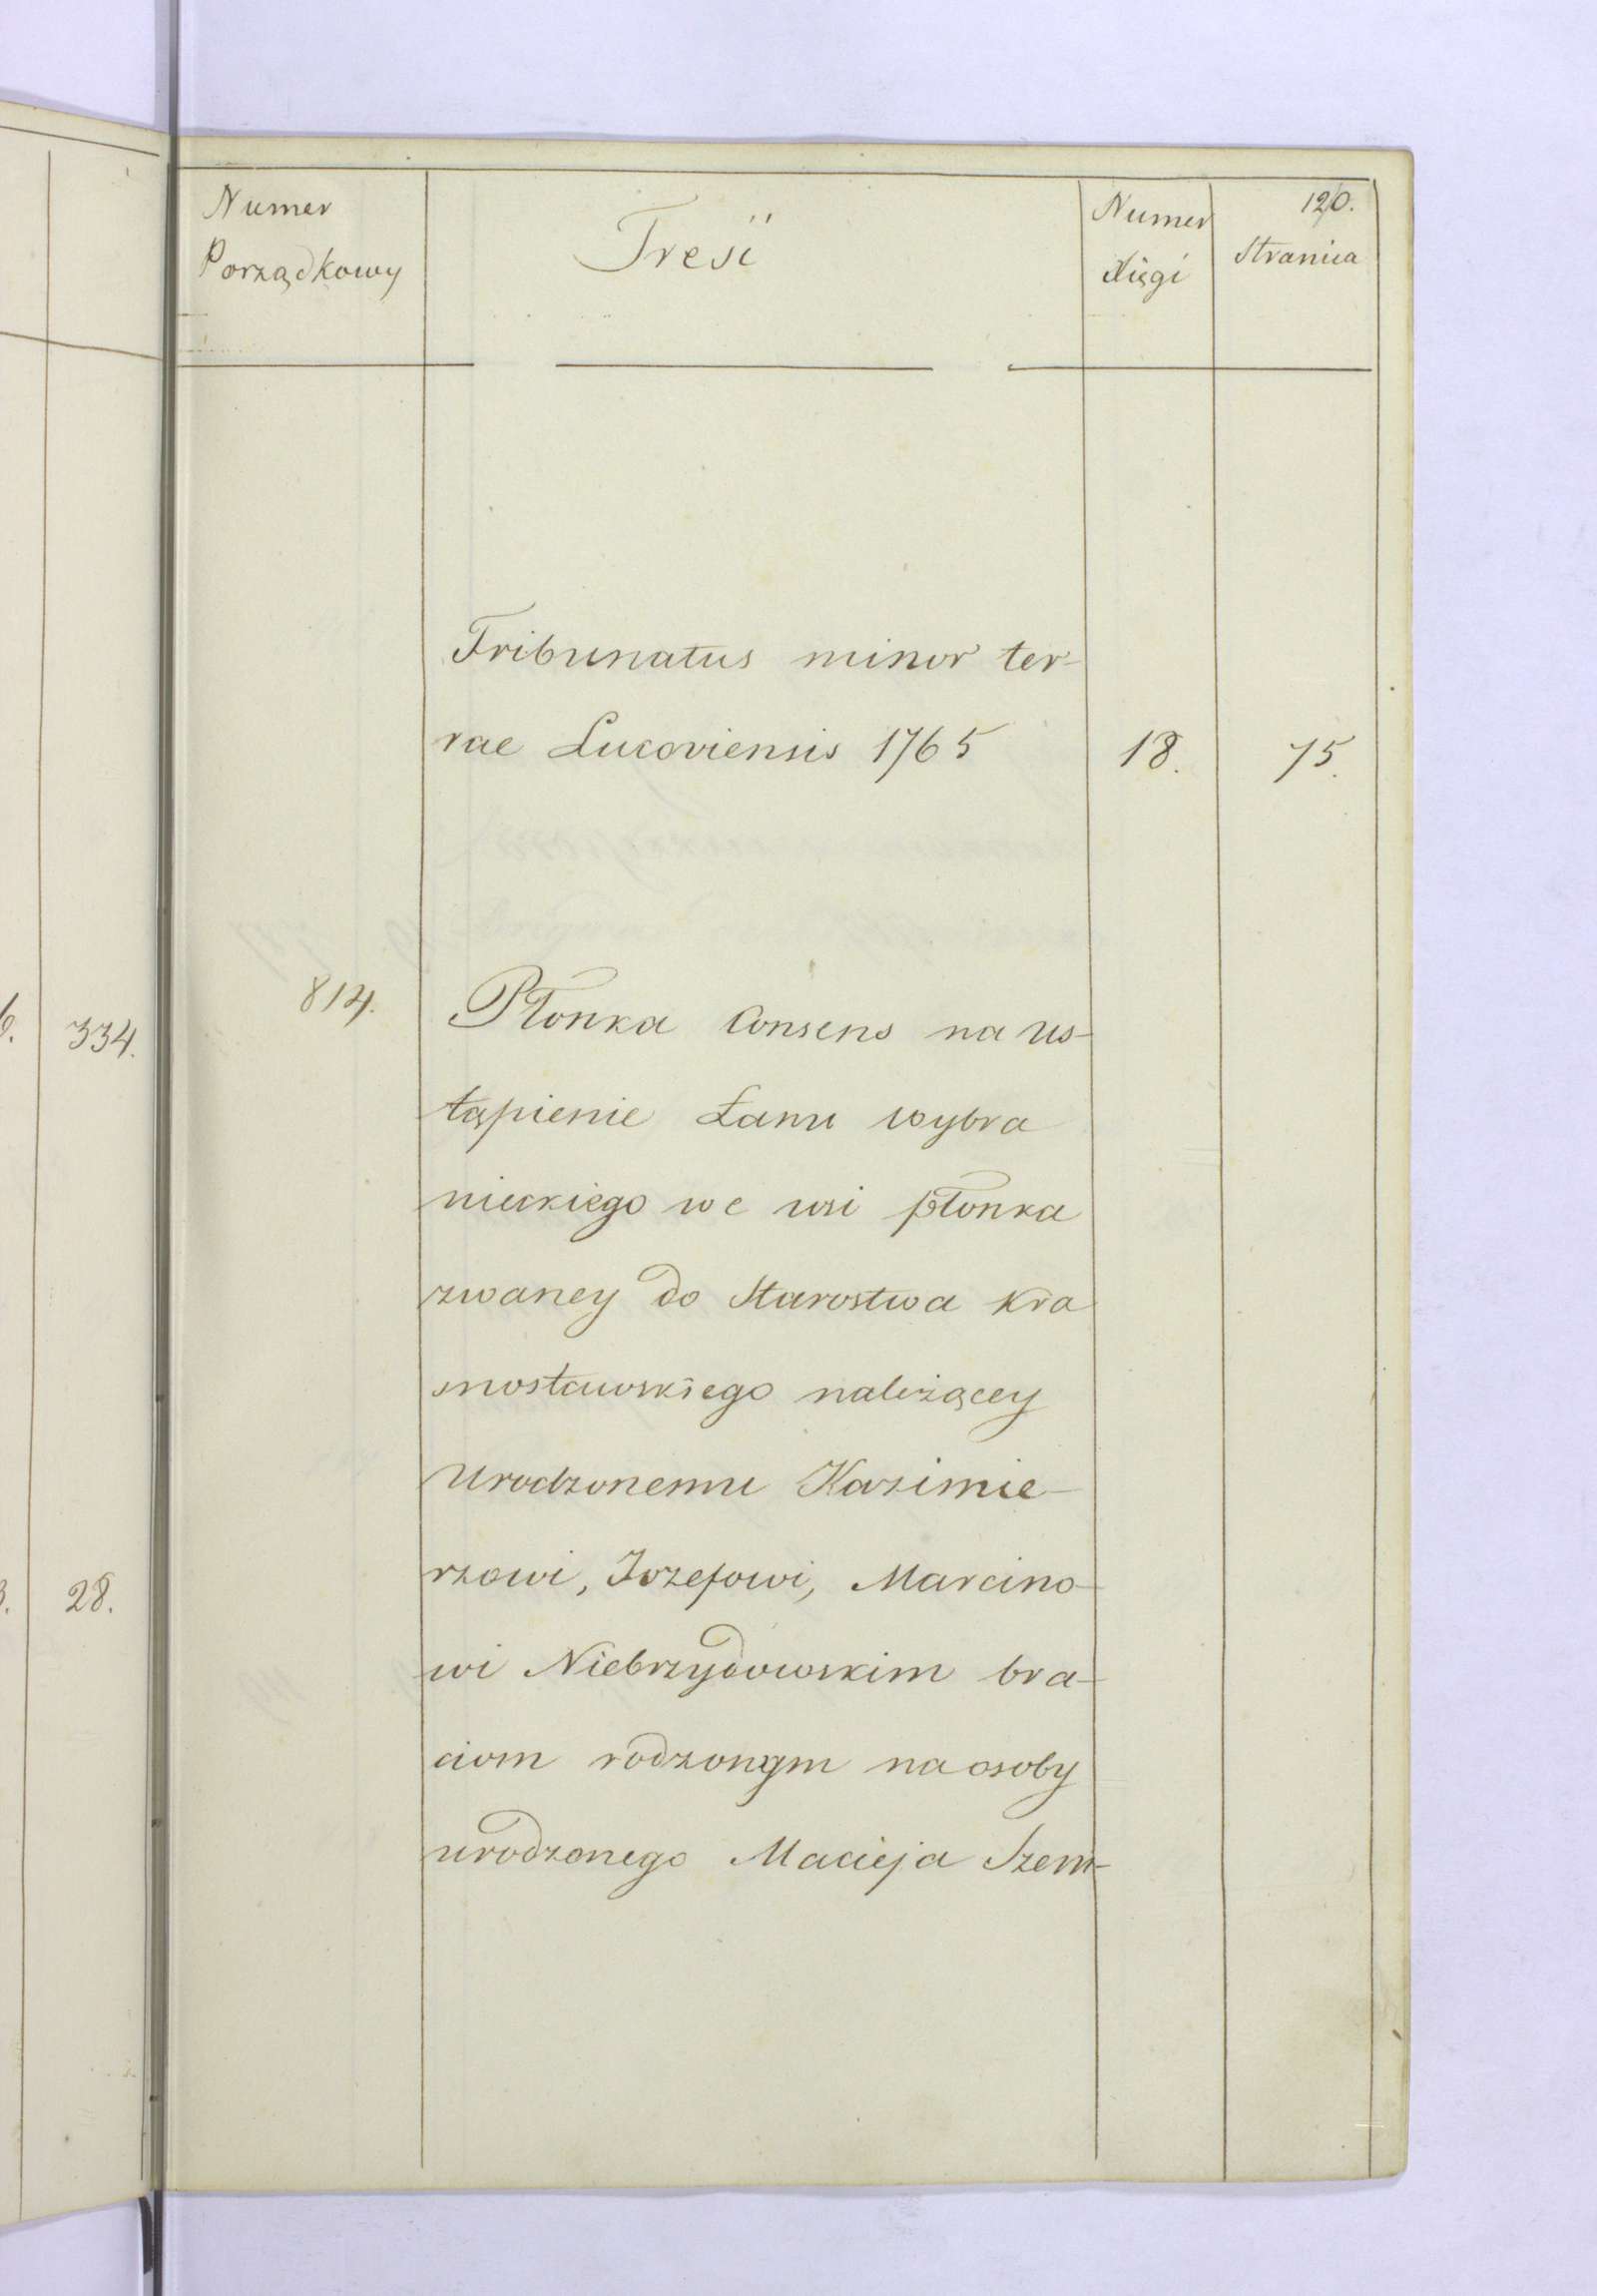 6. 334.
28.
120.
Numer Porządkowy
Treść
Numer Xięgi
Stranica
Tribunatus minor ter-
rae Lucoviensis 1765 18. 75.
814. Płonka Consens na us-
tąpienie Łanu wybra
nieckiego we wsi płonka
zwaney do Starostwa Kra
snostawskiego należącey
Urodzonemu Kazimie-
rzowi, Jozefowi, Marcino-
wi Niebrzydowskim bra-
ciom rodzonym na osoby
urodzonego Macieja Szem-